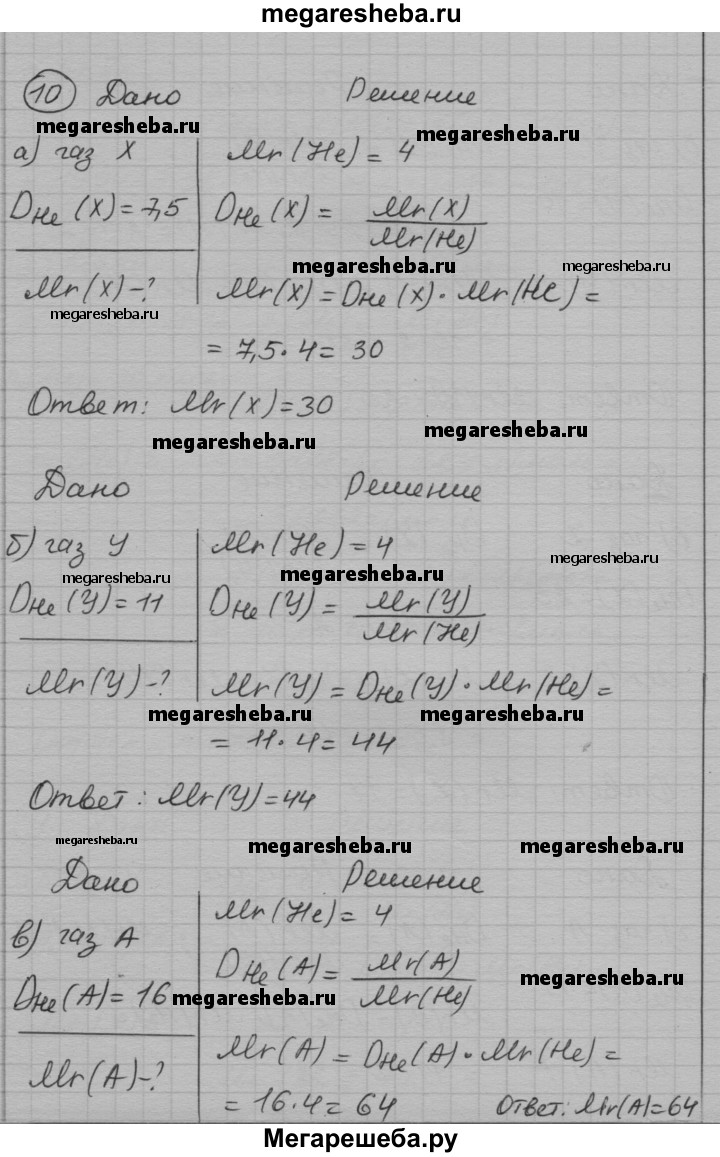 megaresheba.ru
10 Дано Решение
megaresheba.ru megaresheba.ru
а) газ X Mr(He) = 4
DHe (X) = 7,5 DHe (X) = Mr(X) / Mr(He)
megaresheba.ru megaresheba.ru
Mr(X) - ? Mr(X) = DHe (X) · Mr(He) =
megaresheba.ru
= 7,5 · 4 = 30
Ответ: Mr(X) = 30
megaresheba.ru megaresheba.ru
Дано Решение
б) газ У Mr(He) = 4
megaresheba.ru megaresheba.ru megaresheba.ru
DHe (У) = 11 DHe (У) = Mr(У) / Mr(He)
Mr(У) - ? Mr(У) = DHe (У) · Mr(He) =
megaresheba.ru megaresheba.ru
= 11 · 4 = 44
Ответ: Mr(У) = 44
megaresheba.ru megaresheba.ru megaresheba.ru
Дано Решение
Mr(He) = 4
в) газ A
DHe (A) = Mr(A) / Mr(He)
megaresheba.ru
DHe (A) = 16 megaresheba.ru
Mr(A) = DHe (A) · Mr(He) =
Mr(A) - ?
= 16 · 4 = 64 Ответ: Mr(A) = 64
Мегарешеба.ру